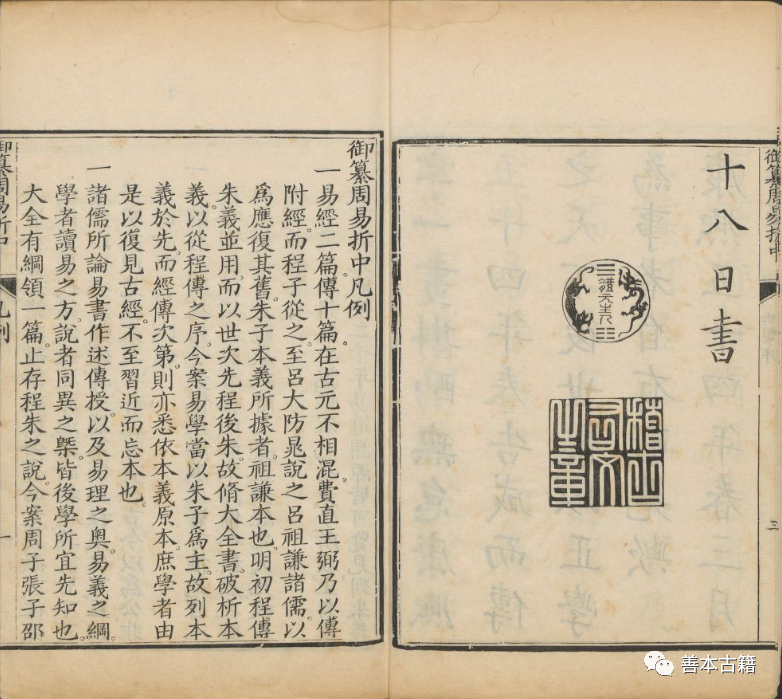 御纂周易折中
十八日書
體元主人
稽古右文之章
三
御纂周易折中凡例
一易經二篇傳十篇在古元不相混費直王弼乃以傳
附經而程子從之至呂大防晁說之呂祖謙諸儒以
爲應復其舊朱子本義所據者祖謙本也明初程傳
朱義並用而以世次先程後朱故脩大全書破析本
義以從程傳之序今案易學當以朱子爲主故列本
義於先而經傳次第則亦悉依本義原本庶學者由
是以復見古經不至習近而忘本也
一諸儒所論易書作述傳授以及易理之奧易義之綱
學者讀易之方說者同異之槩皆後學所宜先知也
大全有綱領一篇止存程朱之說今案周子張子邵
御纂周易折中
凡例
一
善本古籍